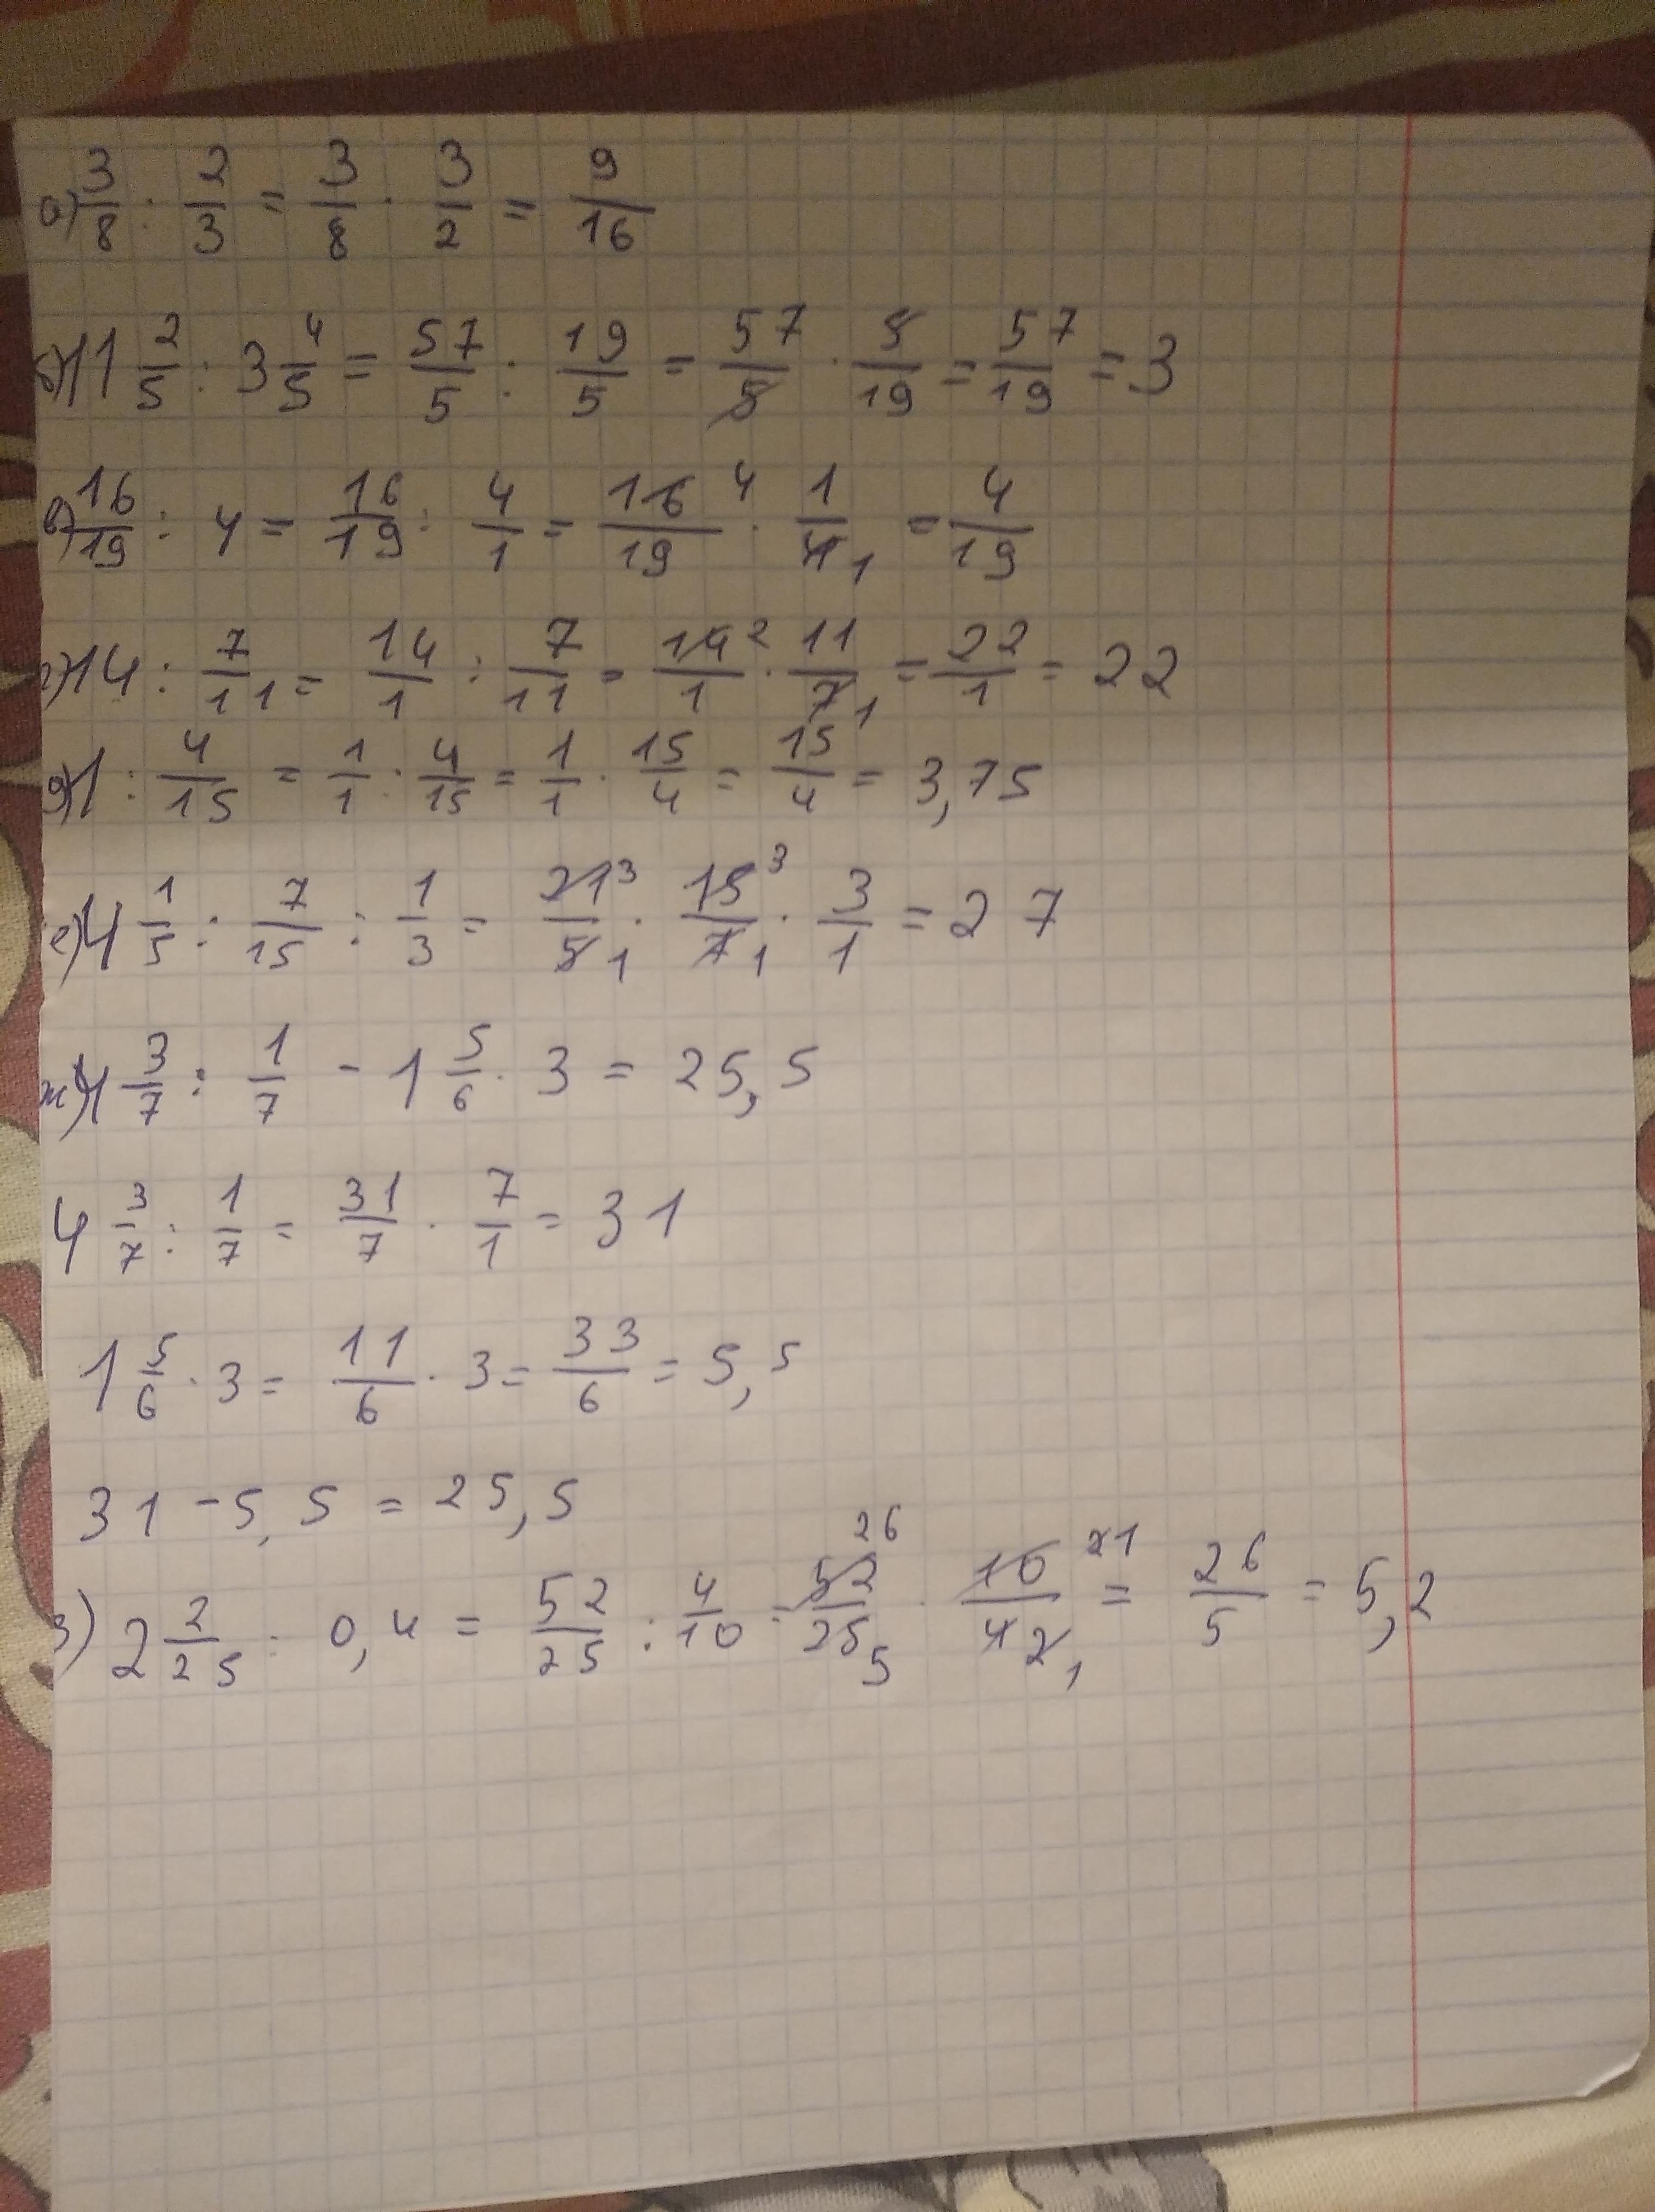 а) 3/8 : 2/3 = 3/8 · 3/2 = 9/16
б) 11 2/5 : 3 4/5 = 57/5 : 19/5 = 57/5 · 5/19 = 57/19 = 3
в) 16/19 : 4 = 16/19 : 4/1 = 16 4/19 · 1/4 1 = 4/19
г) 14 : 7/11 = 14/1 : 7/11 = 14 2/1 · 11/7 1 = 22/1 = 22
д) 1 : 4/15 = 1/1 : 4/15 = 1/1 · 15/4 = 15/4 = 3,75
е) 4 1/5 : 7/15 : 1/3 = 21 3/5 1 · 15 3/7 1 · 3/1 = 27
ж) 4 3/7 : 1/7 - 1 5/6 · 3 = 25,5
4 3/7 : 1/7 = 31/7 · 7/1 = 31
1 5/6 · 3 = 11/6 · 3 = 33/6 = 5,5
31 - 5,5 = 25,5
з) 2 2/25 : 0,4 = 52/25 : 4/10 = 52 26/25 5 · 10 2 1/4 2 1 = 26/5 = 5,2